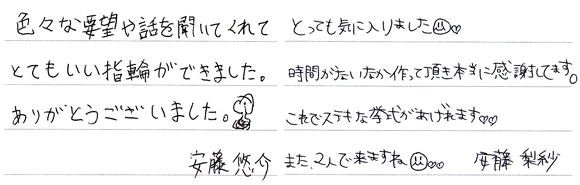 色々な要望や話を聞いてくれて
とてもいい指輪ができました。
ありがとうございました。
安藤 悠介
とっても気に入りました♡
時間がない中作って頂き本当に感謝してます。
これでステキな挙式があげれます♡♡
また、2人で来ますね♡♡ 安藤 梨紗